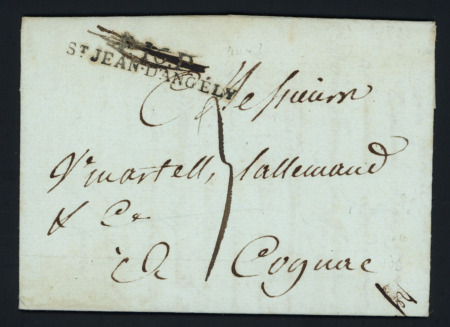 ST JEAN-D'ANGÉLY
Messieurs
Vve martell, lallemand
& Ce
à Cognac